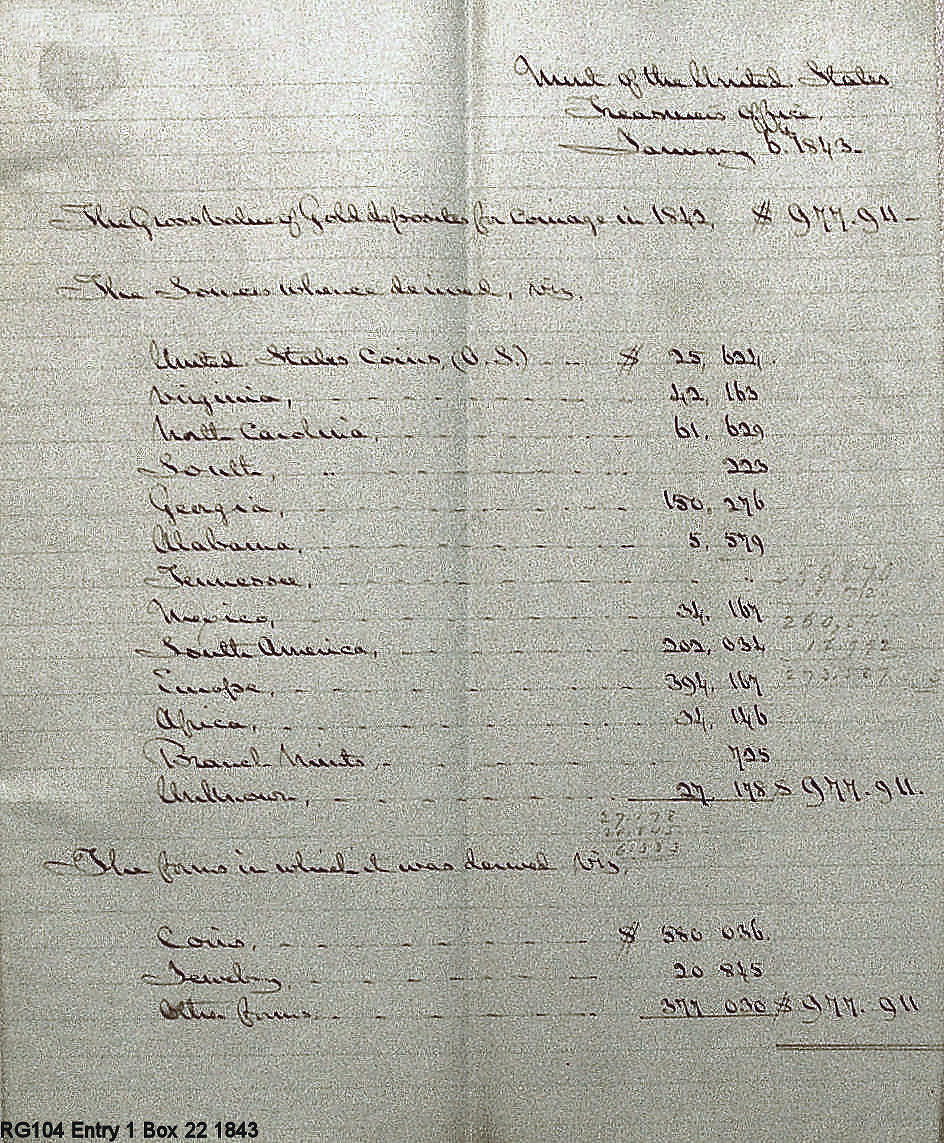 Mint of the United States
Treasurers Office,
January 6th 1843.
The Gross Value of Gold deposites for Coinage in 1842, $ 977.911
The Sources whence derived, viz,
United States Coins, (O.S.) $ 25,624.
Virginia, 42,163
North Carolina, 61,629
South, " 223
Georgia, 150,276
Alabama, 5,579
Tennessee, " "
Mexico, 34,167
South America, 202,034
Europe, 394,167
Africa, 34,146
Branch Mints 725
Unknown, 27,178 $ 977.911.
27,178
20,845
6,333
The forms in which it was derived Viz,
Coins, $ 580 036.
Jewelry, 20 845
Other forms 377 030 $ 977.911
RG104 Entry 1 Box 22 1843